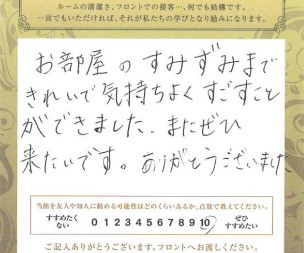 ルームの清潔さ、フロントでの接客…、何でも結構です。
一言でもいただければ、それが私たちの学びとなり励みになります。
お部屋のすみずみまで
きれいで気持ちよくすごすこと
ができました。またぜひ
来たいです。ありがとうございました
当館を友人や知人に勧める可能性はどのくらいあるか、点数で教えてください。
すすめたくない 0 1 2 3 4 5 6 7 8 9 10 ぜひすすめたい
ご記入ありがとうございます。フロントへお渡しください。